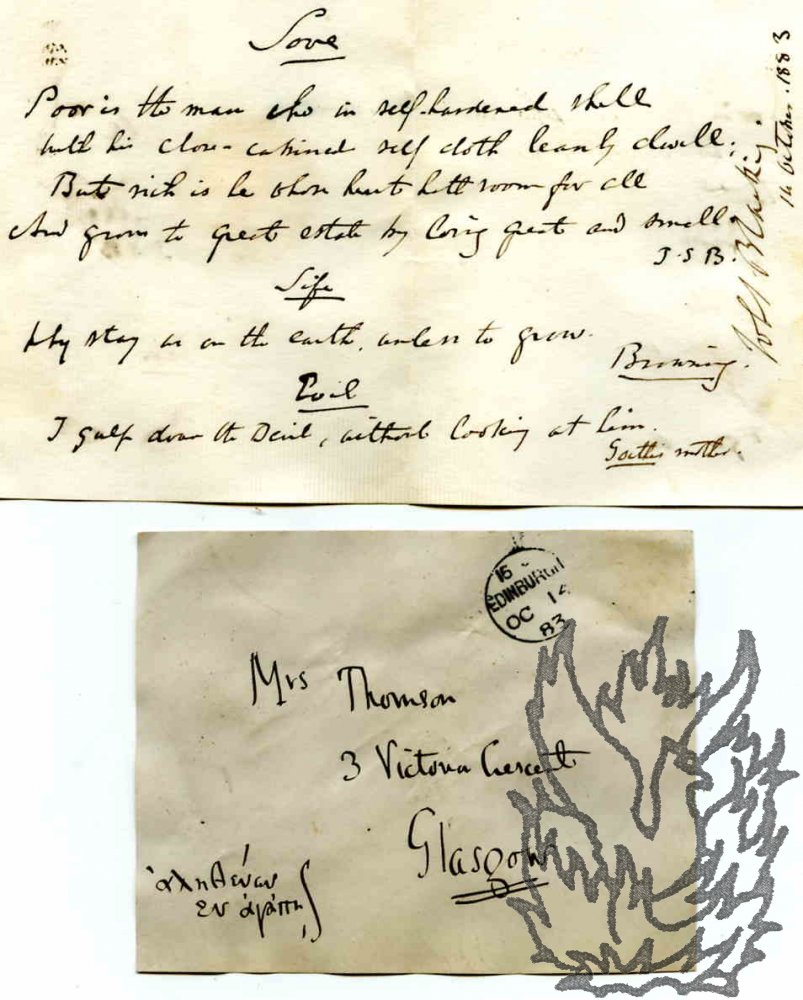 Love
Poor is the man who in self-hardened shell
With his close-cabined self doth leanly dwell;
But rich is he whose heart hath room for all
And grows to great estate by loving great and small.
J. S. B.
Life
Why stay we on the earth, unless to grow.
Browning.
Evil
I gulp down the Devil, without looking at him.
Goethe's mother.
John S Blackie.
14 October. 1883
15
EDINBURGH
OC 14
83
Mrs Thomson
3 Victoria Crescent
Glasgow
ἀληθεύων
ἐν ἀγάπῃ